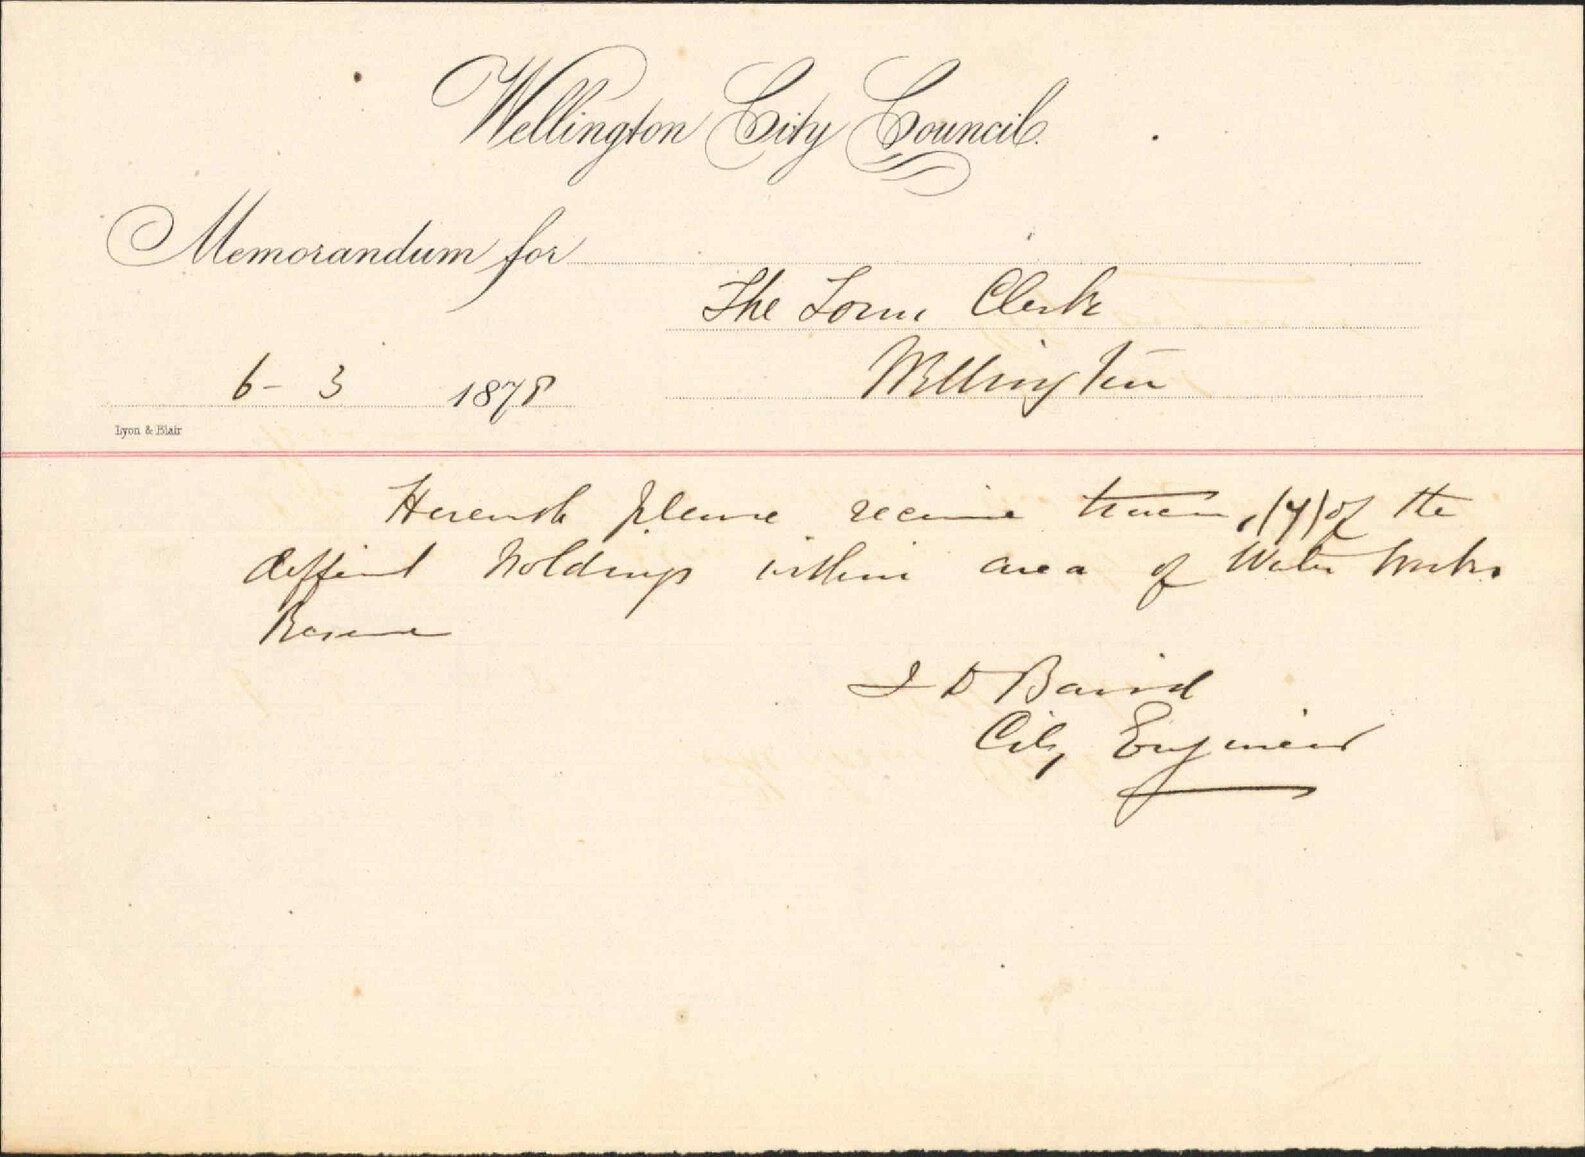 Wellington City Council.
Memorandum for
The Town Clerk
Wellington
6 - 3 1878
Lyon & Blair
Herewith please receive tracings (7) of the
different holdings within area of Water Works
Reserve
J D Baird
City Engineer